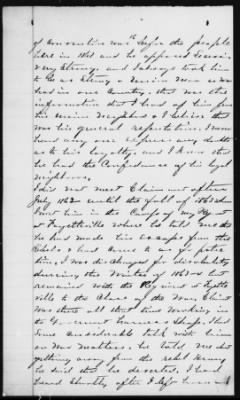 of convention was before the people
here in 1861 and he opposed
very strong and I always took him
to be as strong a Union man as we
had in our County. this was the
information that I had of him from
his Union Neighbors & I believe this
was his general reputation. I never
heard any one express any doubts
as to his loyalty, and I Know
he had the Confidence of his loyal
neighbors.
I did not meet Claimant after
July 1862 until the fall of 1863 when
I met him in the Camp of my Regiment
at Fayetteville where he told me that
he had made his escape from the
Rebels & had come to us for
time, I was discharged for disability
during the Winter of 1863-4 but
remained with the Regiment at Fayette
ville to the Close of the War, Claimt
was there all that time working in
the Government Harness Shop. I had
some considerable talk with him
on War Matters. he told me about
getting away from the rebel Army
he said that he deserted. I had
heard shortly after I left home